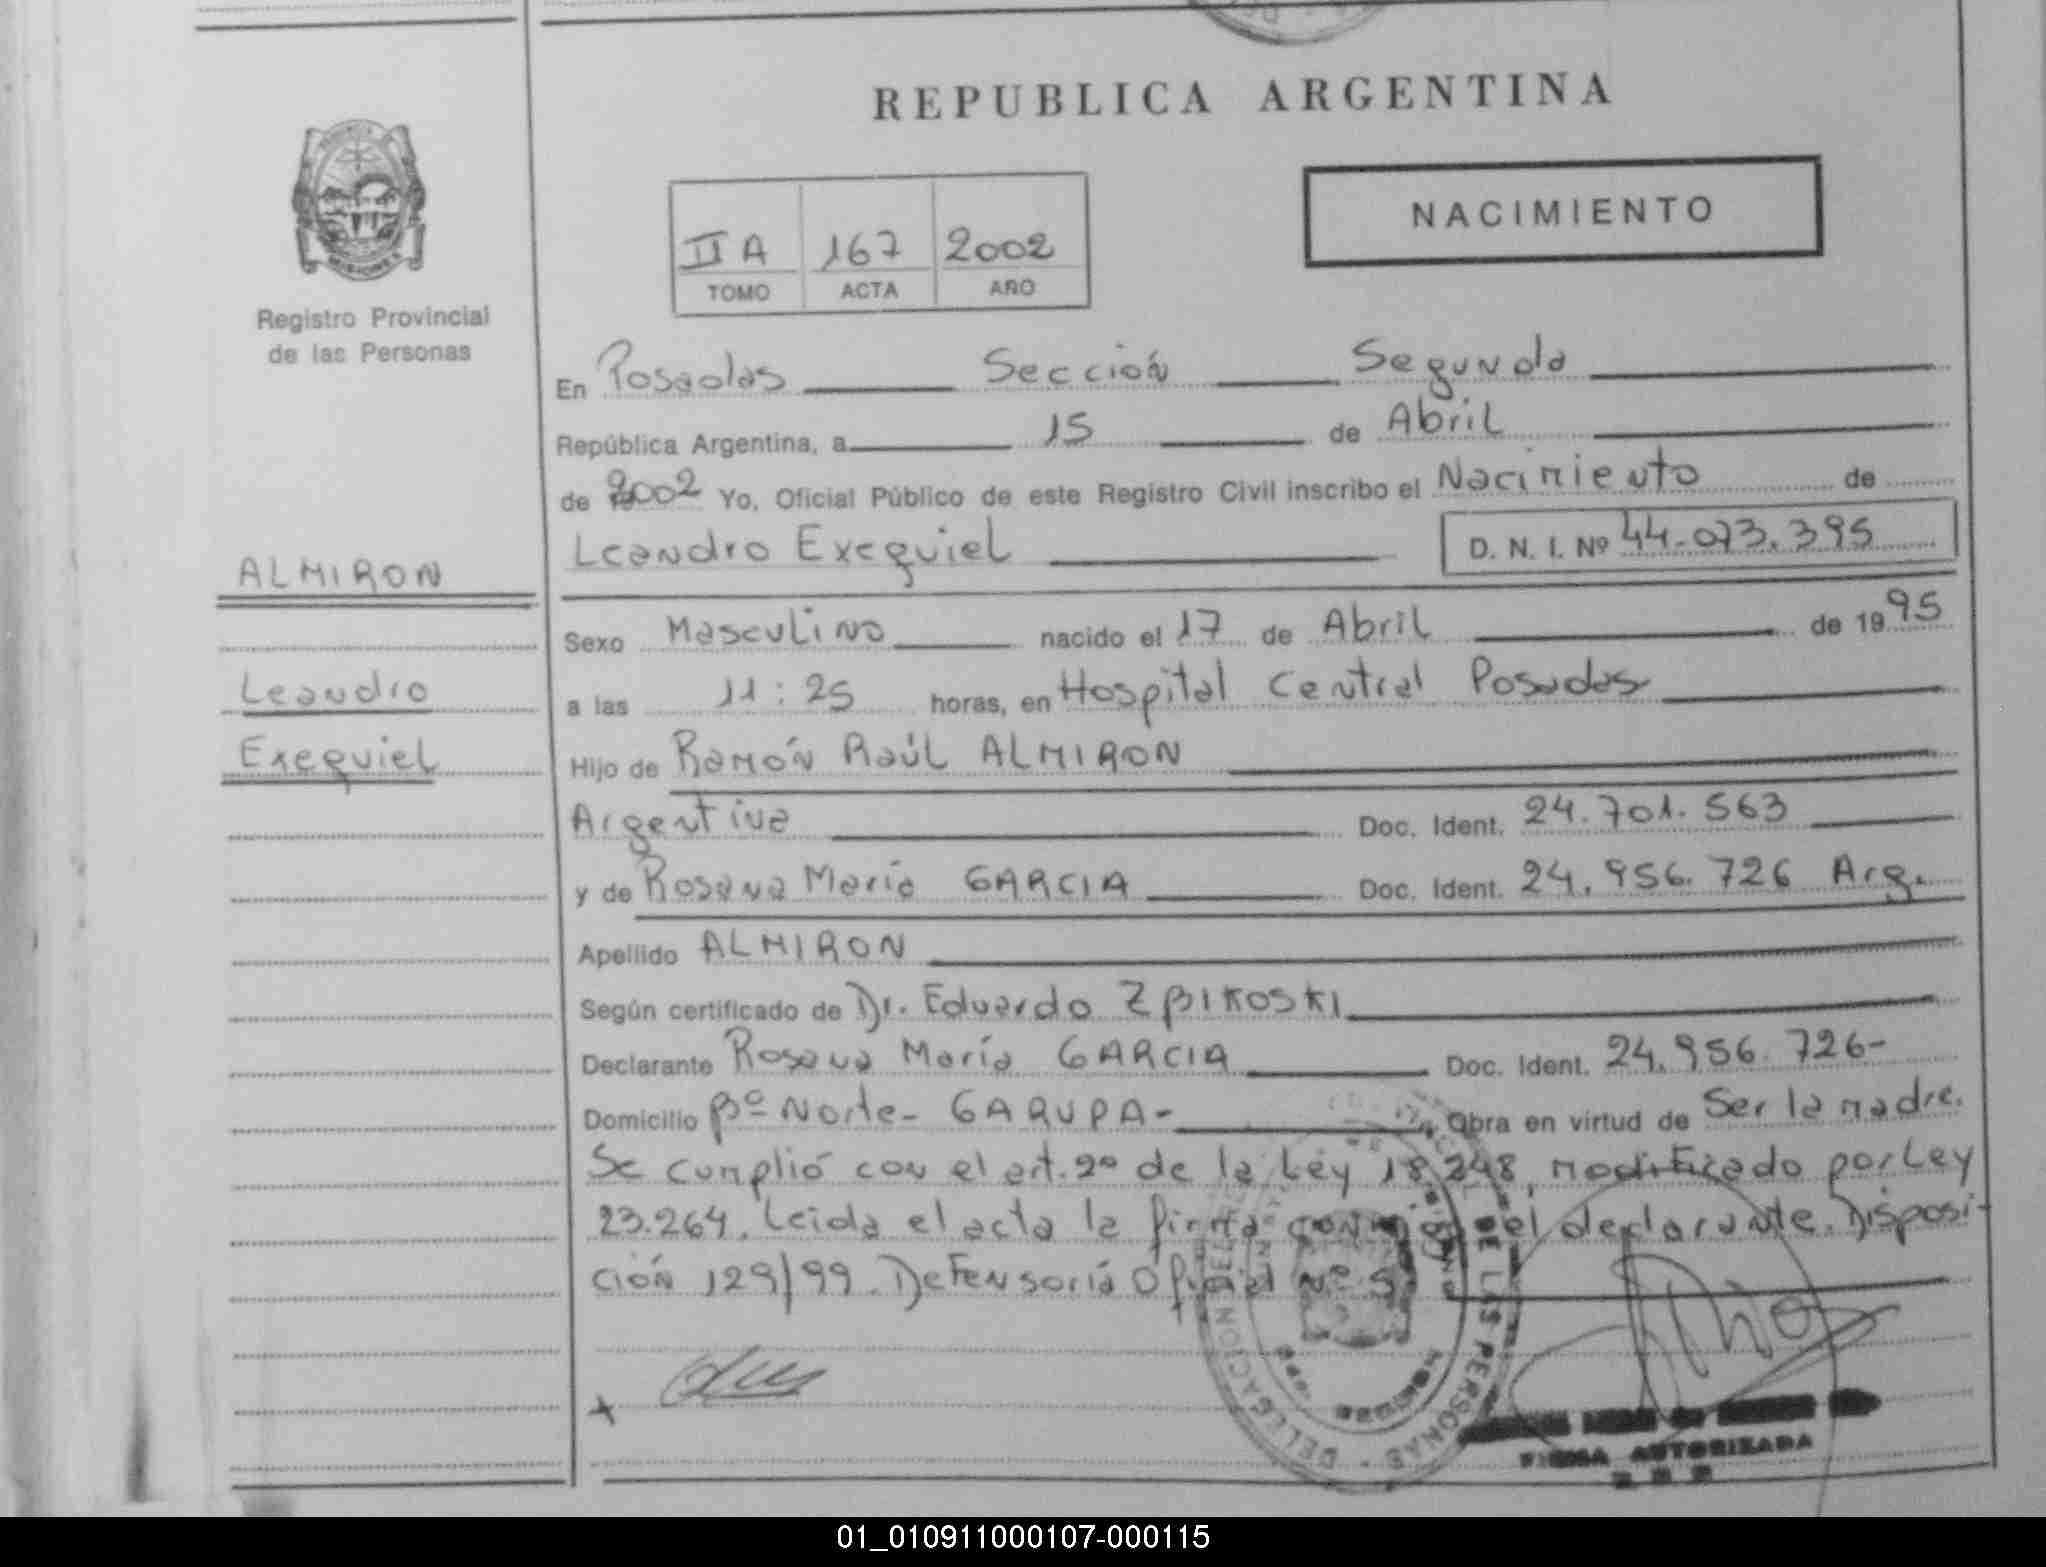 REPUBLICA ARGENTINA
MISIONES
Registro Provincial
de las Personas
II A 167 2002
TOMO ACTA AÑO
NACIMIENTO
En Posadas Sección Segunda
República Argentina, a 15 de Abril
de 2002 Yo, Oficial Público de este Registro Civil inscribo el Nacimiento de
Leandro Exequiel D. N. I. Nº 44.073.395
ALMIRON
Leandro
Exequiel
Sexo Masculino nacido el 17 de Abril de 1995
a las 11:25 horas, en Hospital Central Posadas
Hijo de Ramón Raúl ALMIRON
Argentina Doc. Ident. 24.701.563
y de Rosana María GARCIA Doc. Ident. 24.956.726 Arg.
Apellido ALMIRON
Según certificado de Dr. Eduardo ZBIKOSKI
Declarante Rosana María GARCIA Doc. Ident. 24.956.726-
Domicilio Bº Norte- GARUPA- Obra en virtud de Ser la madre.
Se cumplió con el art. 2º de la Ley 18.248, modificado por Ley
23.264. Leida el acta la firma conmigo el declarante. Disposi-
ción 129/99. Defensoría Oficial Nº 5
DELEGACION DE LAS PERSONAS
FIRMA AUTORIZADA
01_010911000107-000115